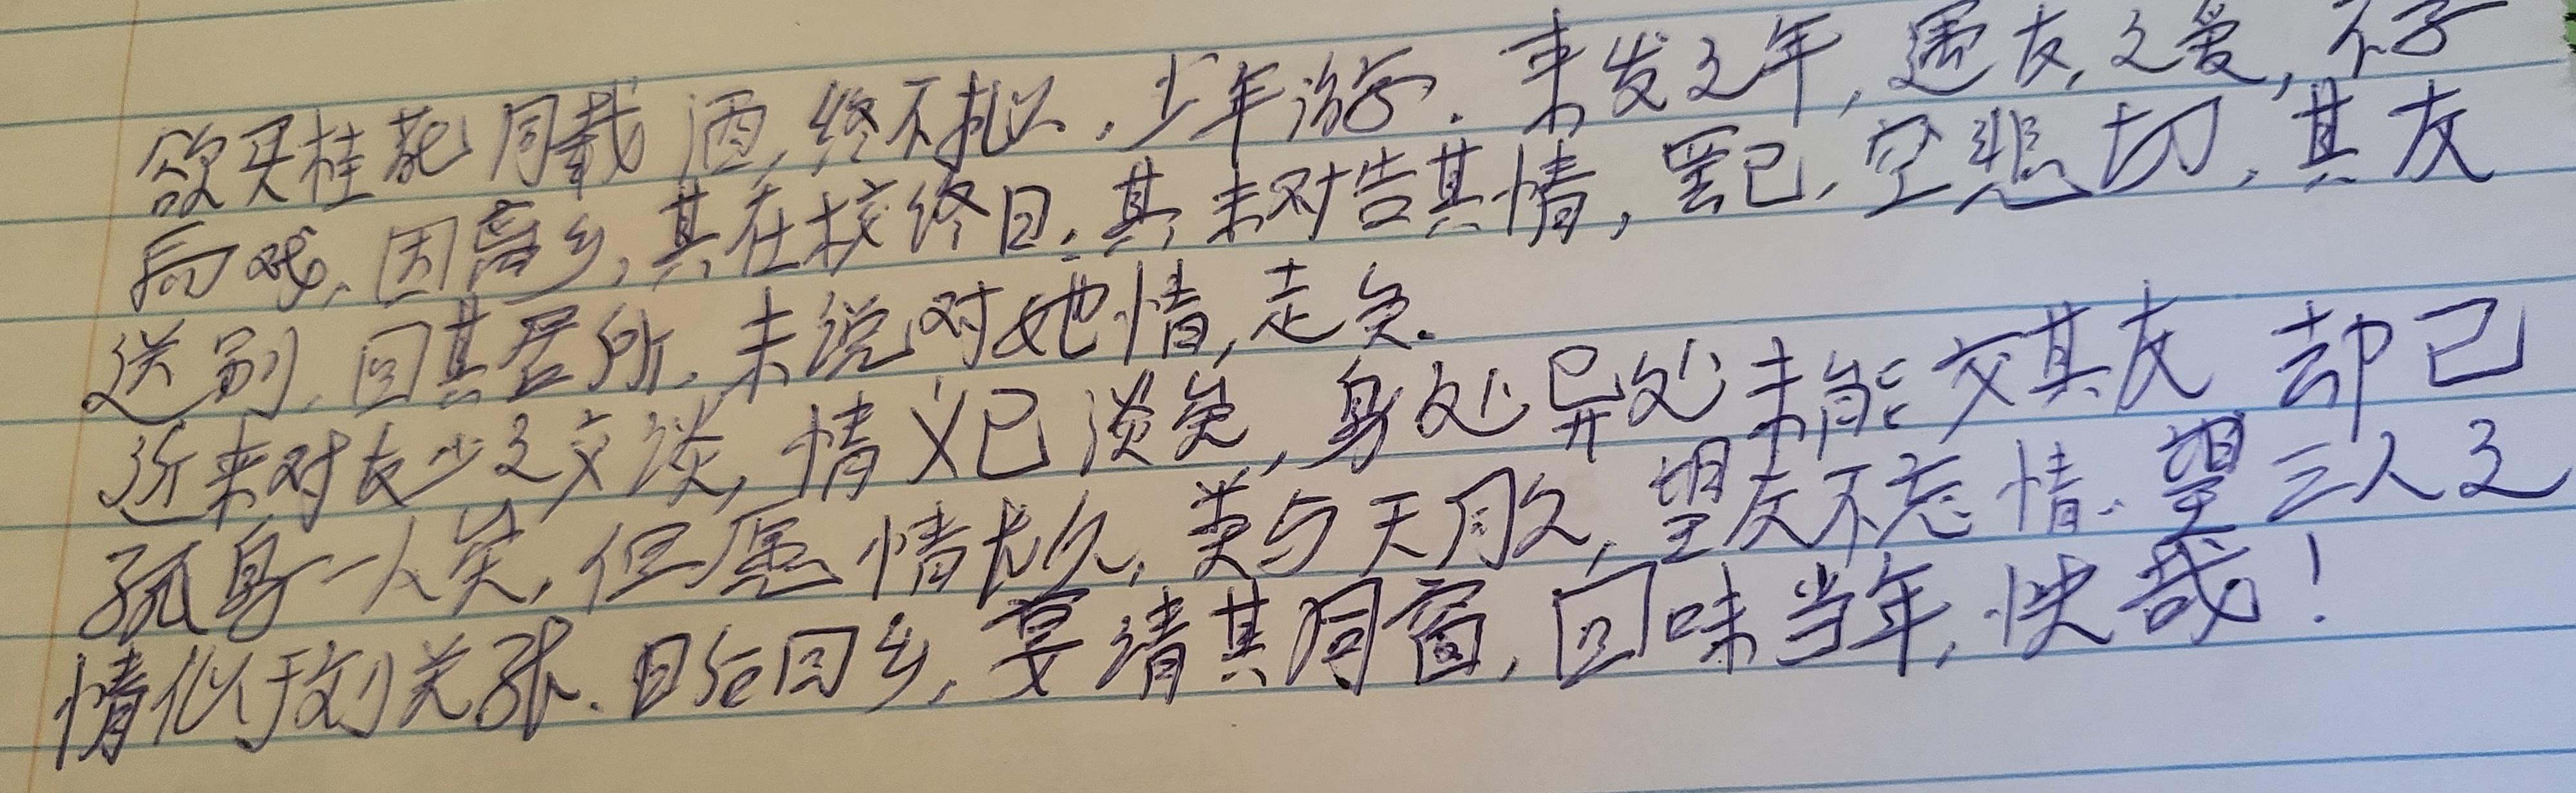 欲买桂花同载酒,终不似,少年游.束发之年,遇友,之爱,不
而哦,因离乡,其在校终日.其未对告其情,罢已,空悲切,其友
送别,回其居所,未说对她情,走矣.
近来对友少之交谈,情义已淡矣,身处异处未能交其友 却已
孤身一人矣,但愿情长久,类与天同久,望友不忘情.望三人之
情似于刘关张.日后回乡,宴请其同窗,回味当年,快哉!